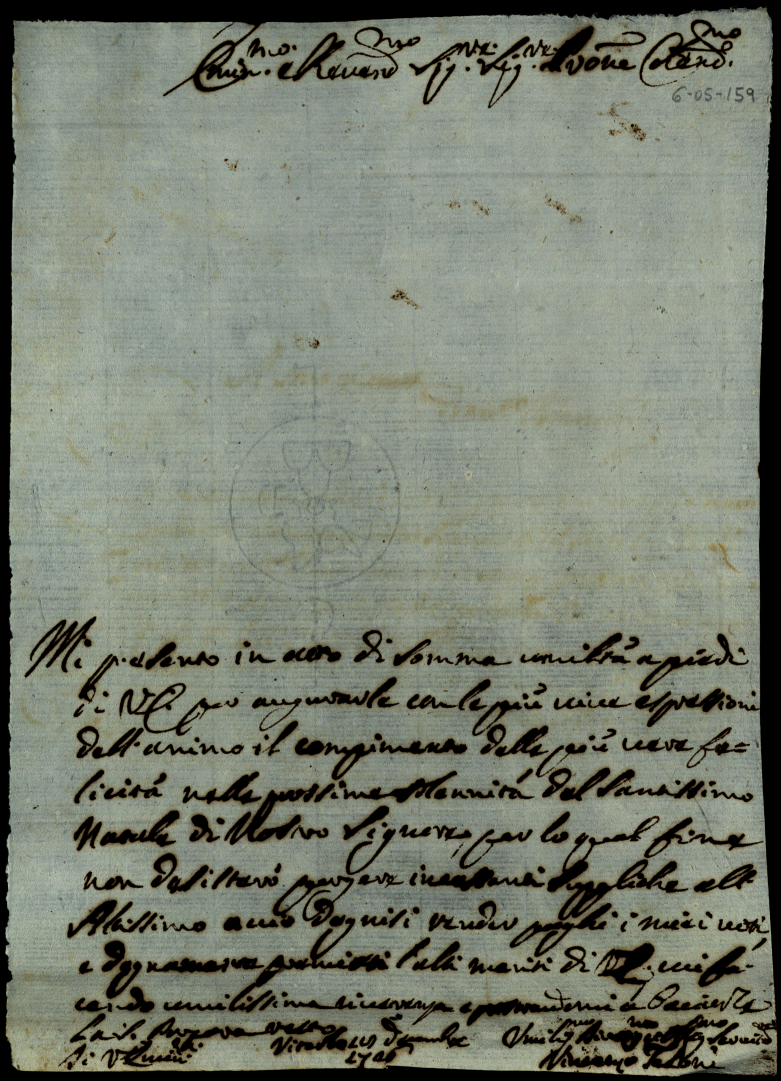 Emin.mo e Rever.mo Sig.re Sig.re Prone Colend.mo
6-05-159
Mi presento in atto di somma umiltà a piedi
di V.E. per augurarle con le più vive espressioni
dell'animo il compimento delle più vere fe=
licità nelle prossime solennità del Santissimo
Natale di Nostro Signore, per lo qual fine
non desisterò porgere incessanti suppliche all'
Altissimo acciò degnisi render paghi i miei voti,
e degnamente premiati l'alti meriti di V.E., cui fa=
cendo umilissima riverenza e prostrandomi a baciarle
la S. Porpora resto
Di V. Emin.
Decembre
Umil.mo
Vincenzo